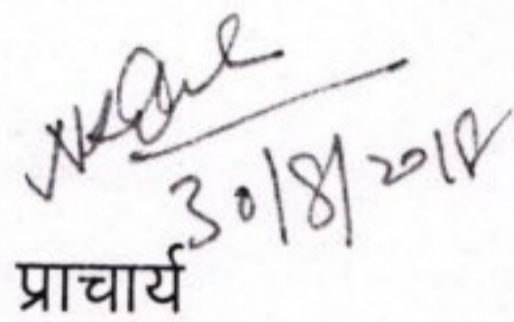 30/8/2018
प्राचार्य